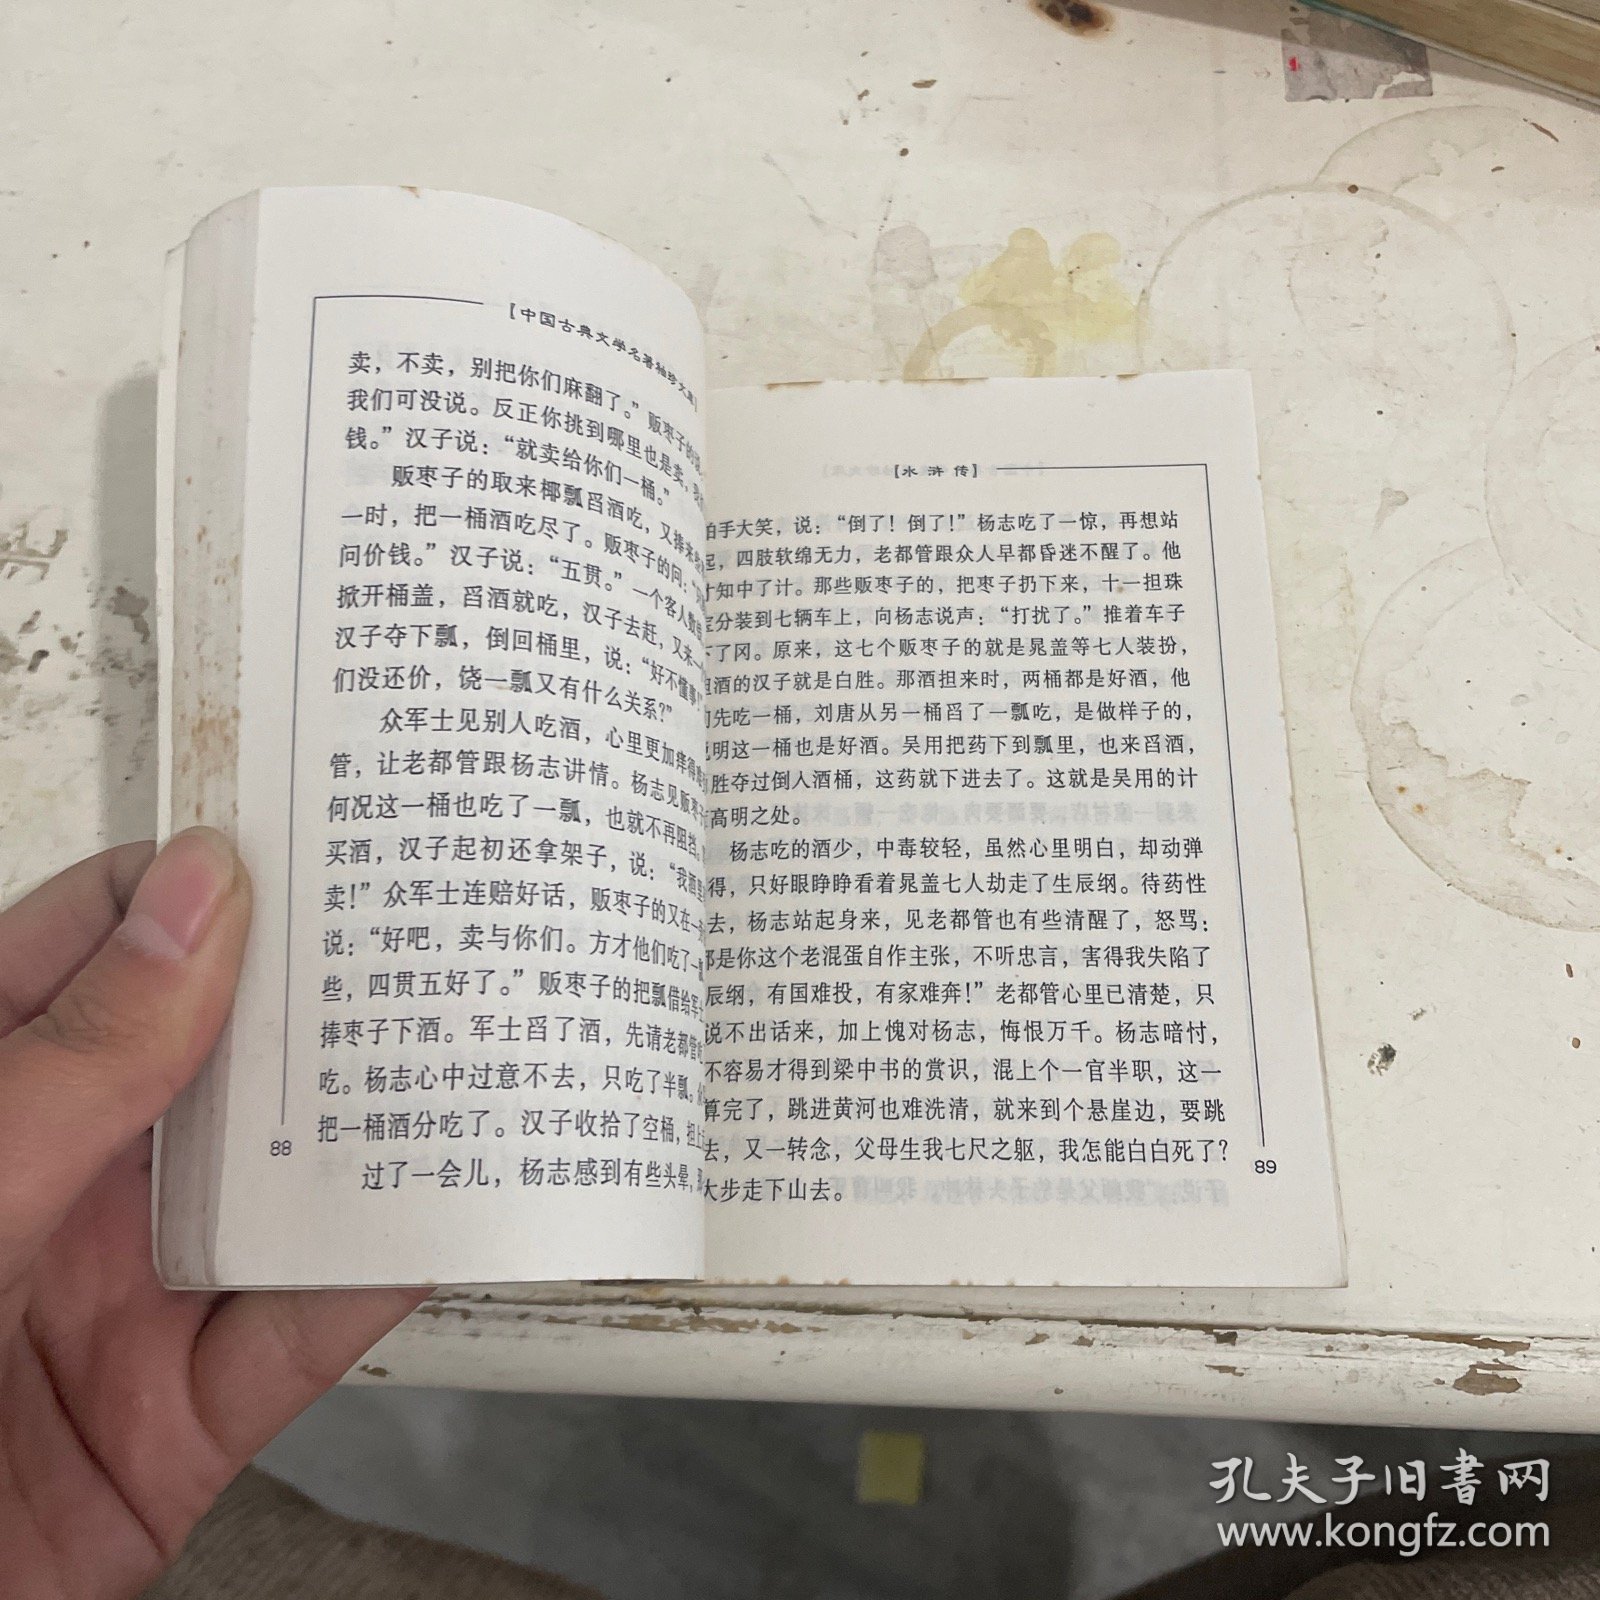 【中国古典文学名著袖珍文库】
卖，不卖，别把你们麻翻了。”贩枣子的说，
我们可没说。反正你挑到哪里也是卖，
钱。”汉子说：“就卖给你们一桶。”
贩枣子的取来椰瓢舀酒吃，又捧来
一时，把一桶酒吃尽了。贩枣子的问：
问价钱。”汉子说：“五贯。”一个客人数
掀开桶盖，舀酒就吃，汉子去赶，又来一
汉子夺下瓢，倒回桶里，说：“好不懂事！
们没还价，饶一瓢又有什么关系？”
众军士见别人吃酒，心里更加痒得
管，让老都管跟杨志讲情。杨志见贩枣子
何况这一桶也吃了一瓢，也就不再阻挡。
买酒，汉子起初还拿架子，说：“我酒里
卖！”众军士连赔好话，贩枣子的又在一
说：“好吧，卖与你们。方才他们吃了一
些，四贯五好了。”贩枣子的把瓢借给军士
捧枣子下酒。军士舀了酒，先请老都管吃
吃。杨志心中过意不去，只吃了半瓢。
把一桶酒分吃了。汉子收拾了空桶，担上
过了一会儿，杨志感到有些头晕，
88
【水浒传】
拍手大笑，说：“倒了！倒了！”杨志吃了一惊，再想站
起，四肢软绵无力，老都管跟众人早都昏迷不醒了。他
才知中了计。那些贩枣子的，把枣子扔下来，十一担珠
宝分装到七辆车上，向杨志说声：“打扰了。”推着车子
下了冈。原来，这七个贩枣子的就是晁盖等七人装扮，
担酒的汉子就是白胜。那酒担来时，两桶都是好酒，他
们先吃一桶，刘唐从另一桶舀了一瓢吃，是做样子的，
说明这一桶也是好酒。吴用把药下到瓢里，也来舀酒，
胜夺过倒人酒桶，这药就下进去了。这就是吴用的计
高明之处。
杨志吃的酒少，中毒较轻，虽然心里明白，却动弹
得，只好眼睁睁看着晁盖七人劫走了生辰纲。待药性
去，杨志站起身来，见老都管也有些清醒了，怒骂：
都是你这个老混蛋自作主张，不听忠言，害得我失陷了
辰纲，有国难投，有家难奔！”老都管心里已清楚，只
说不出话来，加上愧对杨志，悔恨万千。杨志暗忖，
不容易才得到梁中书的赏识，混上个一官半职，这一
算完了，跳进黄河也难洗清，就来到个悬崖边，要跳
去，又一转念，父母生我七尺之躯，我怎能白白死了？
大步走下山去。
89
孔夫子旧书网
www.kongfz.com